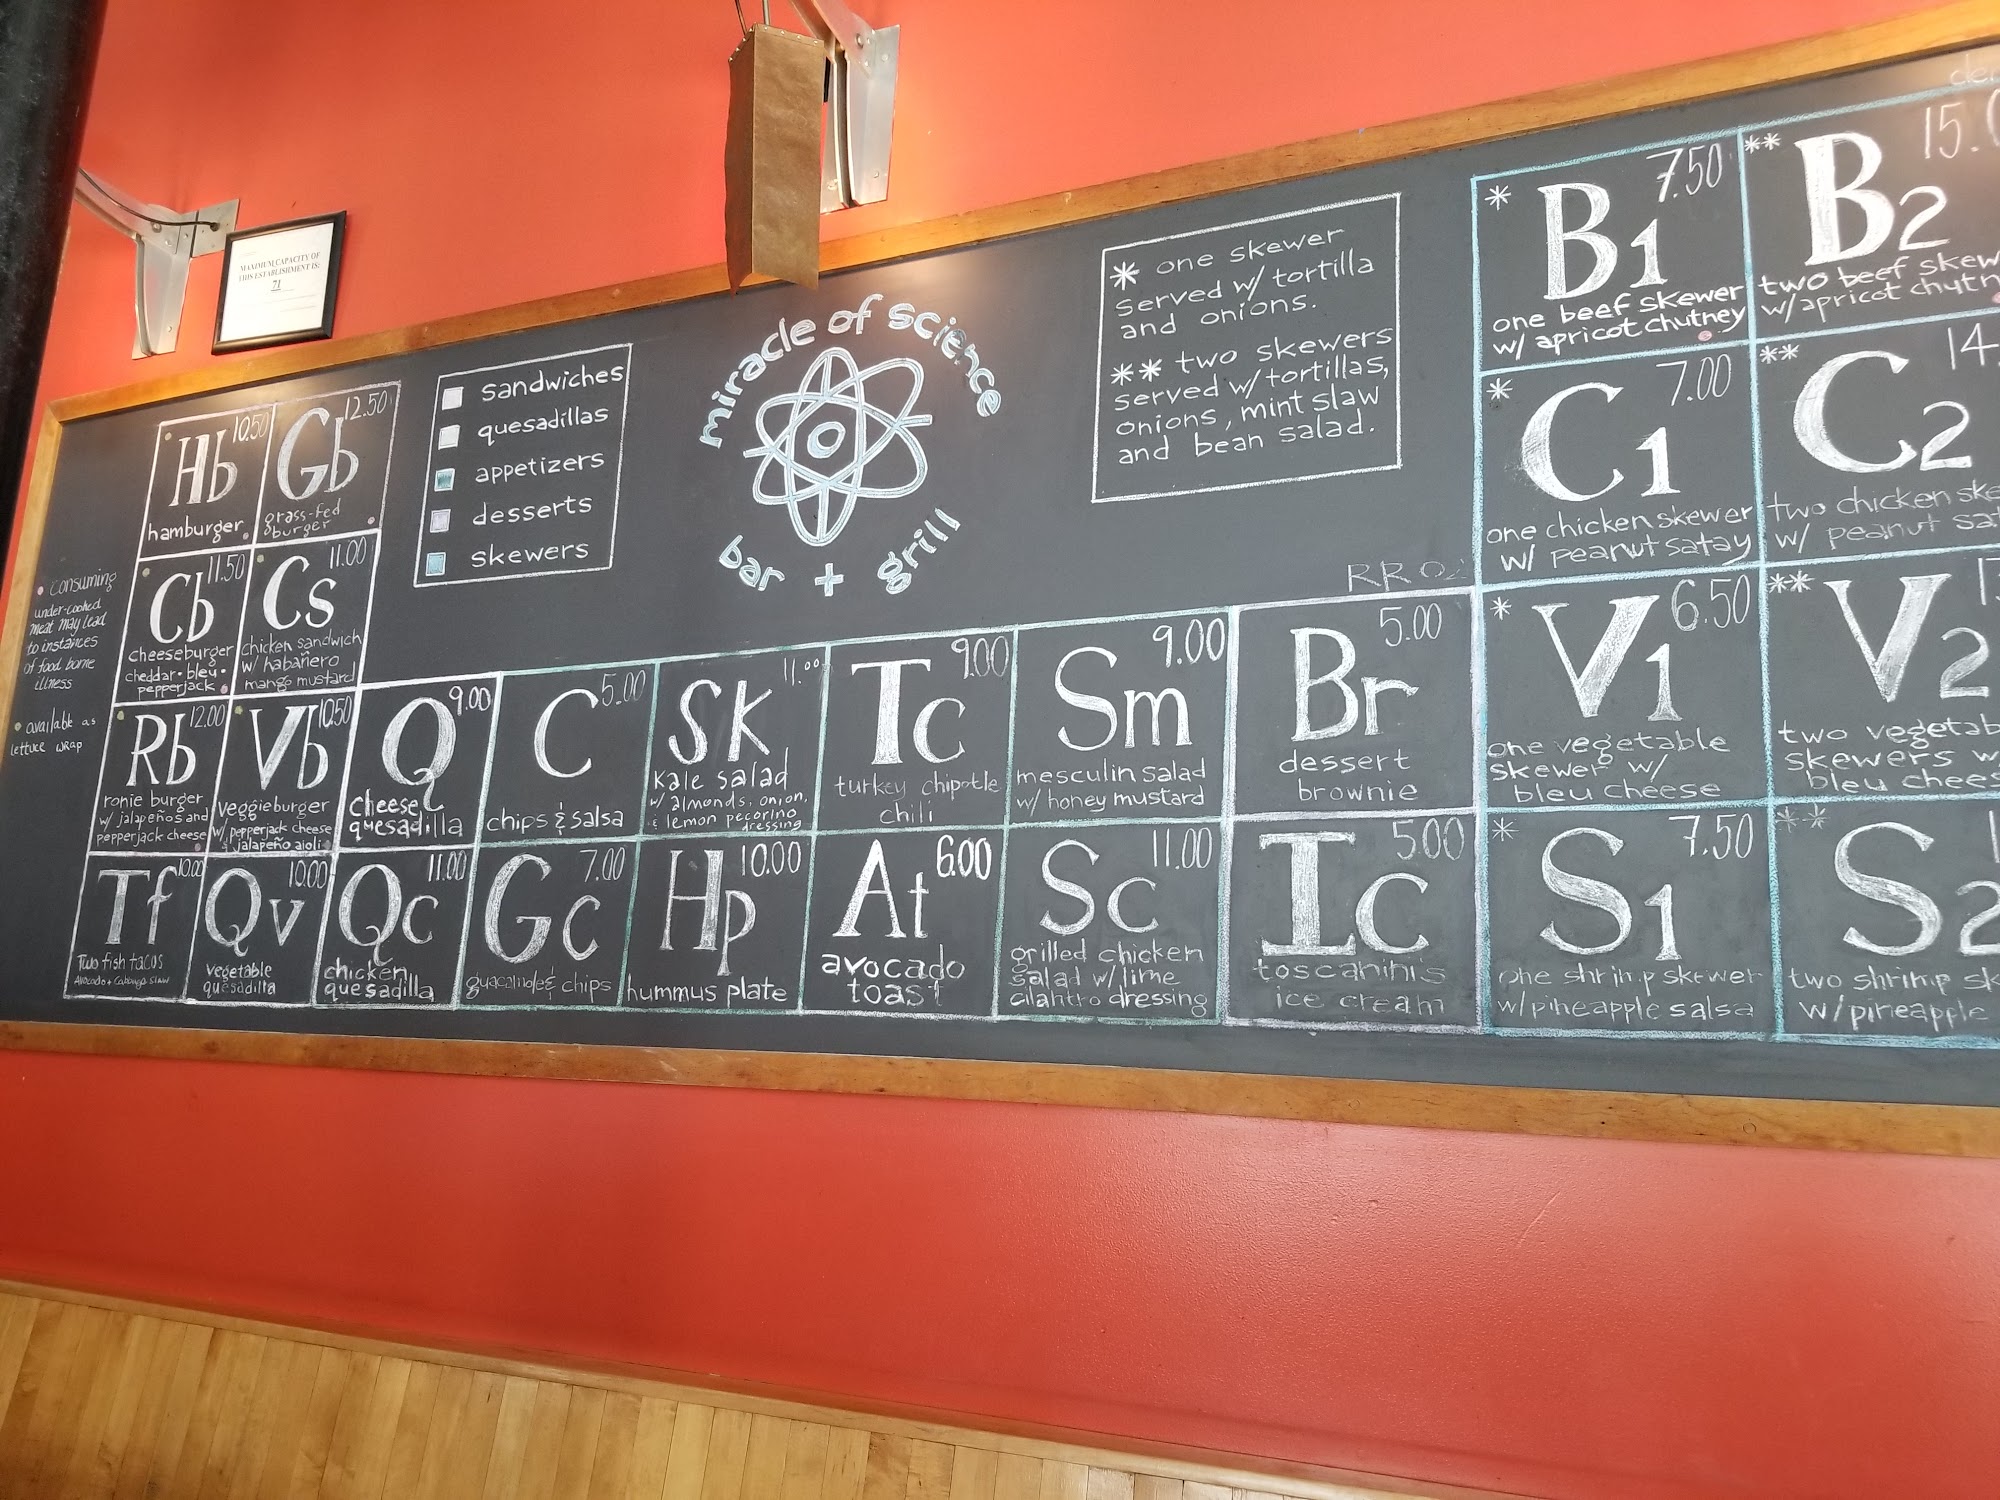 MAXIMUM CAPACITY OF
THIS ESTABLISHMENT IS:
71
miracle of science
bar + grill
sandwiches
quesadillas
appetizers
desserts
skewers
* one skewer
served w/ tortilla
and onions.
** two skewers
served w/ tortillas,
onions, mint slaw
and bean salad.
• Consuming
under-cooked
meat may lead
to instances
of food borne
illness
• available as
lettuce wrap
Hb 10.50
hamburger
Gb 12.50
grass-fed
burger
Cb 11.50
cheeseburger
cheddar • bleu •
pepperjack
Cs 11.00
chicken sandwich
w/ habañero
mango mustard
Rb 12.00
ronie burger
w/ jalapeños and
pepperjack cheese
Vb 10.50
veggieburger
w/ pepperjack cheese
& jalapeño aioli
Q 9.00
cheese
quesadilla
C 5.00
chips & salsa
SK 11.00
kale salad
w/ almonds, onion,
& lemon pecorino
dressing
Tc 9.00
turkey chipotle
chili
Sm 9.00
mesculin salad
w/ honey mustard
RR
Br 5.00
dessert
brownie
Tf 10.00
Two fish tacos
Avocado + Cabbage slaw
Qv 10.00
vegetable
quesadilla
Qc 11.00
chicken
quesadilla
Gc 7.00
guacamole & chips
Hp 10.00
hummus plate
At 6.00
avocado
toast
Sc 11.00
grilled chicken
salad w/ lime
cilantro dressing
Ic 5.00
toscanini's
ice cream
* B1 7.50
one beef skewer
w/ apricot chutney
** B2 15.0
two beef skew
w/ apricot chutn
* C1 7.00
one chicken skewer
w/ peanut satay
** C2 14.
two chicken ske
w/ peanut sat
* V1 6.50
one vegetable
skewer w/
bleu cheese
** V2
two vegetab
skewers w
bleu chees
* S1 7.50
one shrimp skewer
w/ pineapple salsa
** S2
two shrimp sk
w/ pineapple